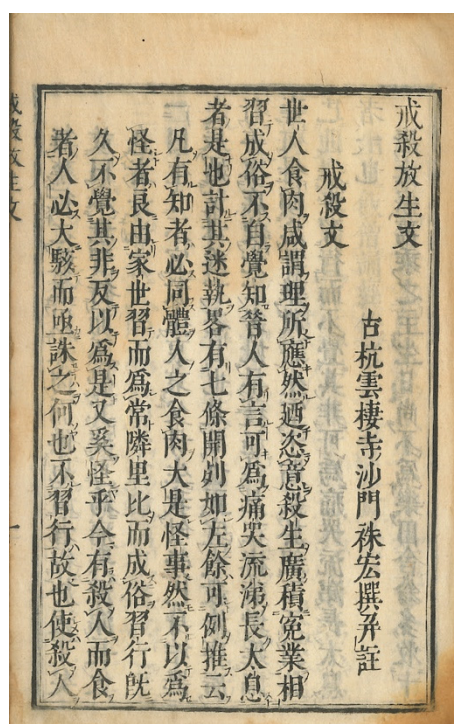 戒殺放生文
古杭雲棲寺沙門袾宏撰并註
戒殺文
世人食肉咸謂理所應然廼恣意殺生廣積冤業相
習成俗不自覺知昔人有言可為痛哭流涕長太息
者是也計其迷執畧有七條開列如左餘可例推云
凡有知者必同體人之食肉大是怪事然不以為
怪者良由家世習而為常隣里比而成俗習行既
久不覺其非反以爲是又奚怪乎今有殺人而食
者人必大駭而亟誅之何也不習行故也使殺人
戒殺放生文
一